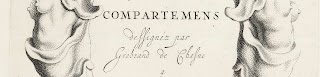 COMPARTEMENS
dessignez par
Gerbrand de Chesne
a